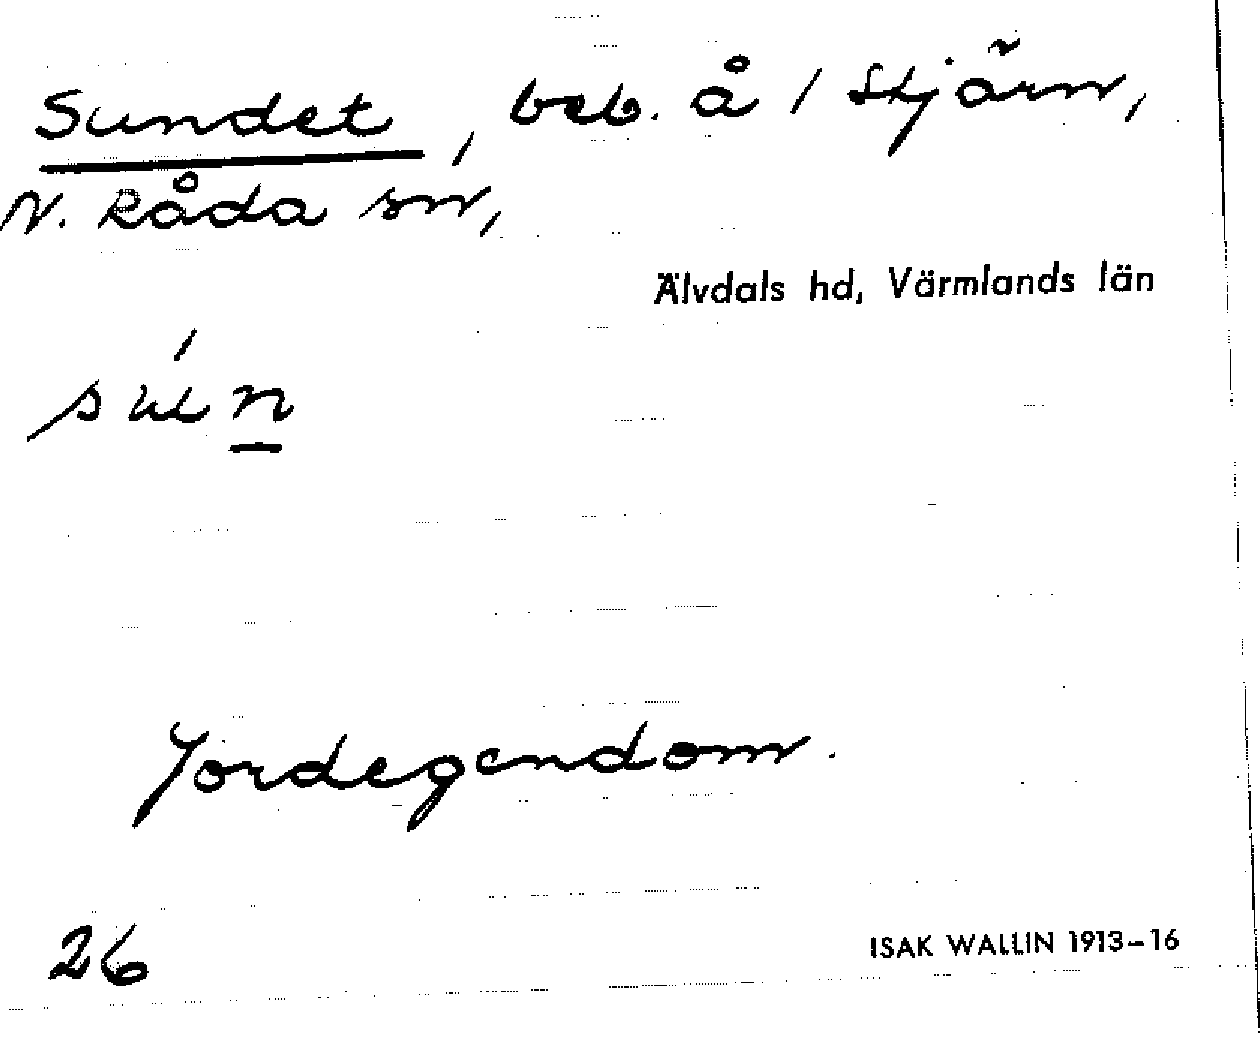 Sundet, beb. å 1 Stjärn,
N. Råda sn,
Älvdals hd, Värmlands län
Jordegendom.
26 ISAK WALLIN 1913-16